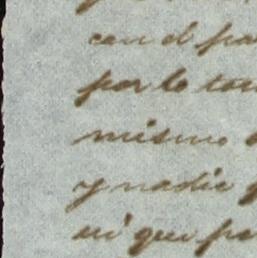 con el pa
por lo tan
mismo
y nadie
ni que pa